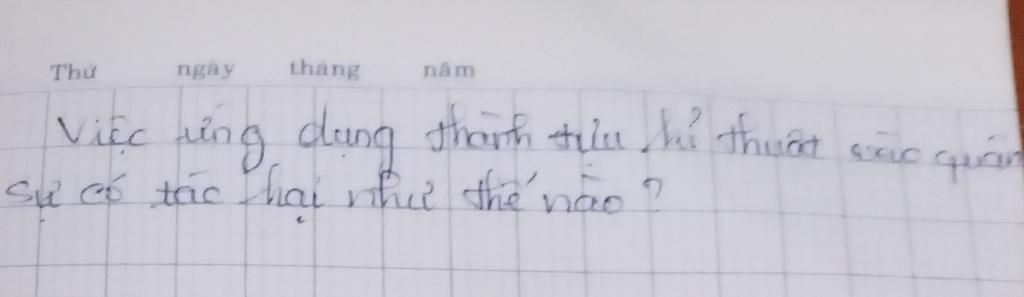 Thứ ngày tháng năm
Việc ứng dụng thành tựu kĩ thuật vào quân
sự có tác hại như thế nào?